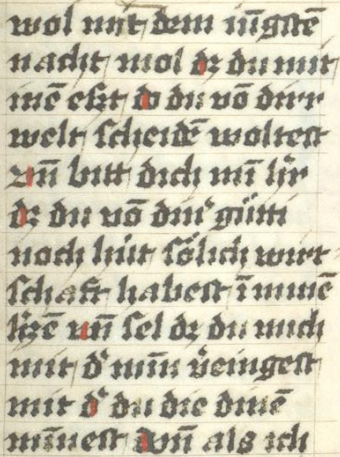 wol mit dem iūgstē
nacht mol dz du mit
inē eſzt do du vō dirr
welt ſcheidē wolteſt
vn̄ bitt dich mī h̄r
dz du vō dinꝰ gütti
noch hüt ſölich wirt
ſchaft habeſt ī minē
h̄zē vn̄ ſel dz du mich
mit dꝰ mīn v̄eingeſt
mit dꝰ du die dinē
mīneſt vn̄ als ich